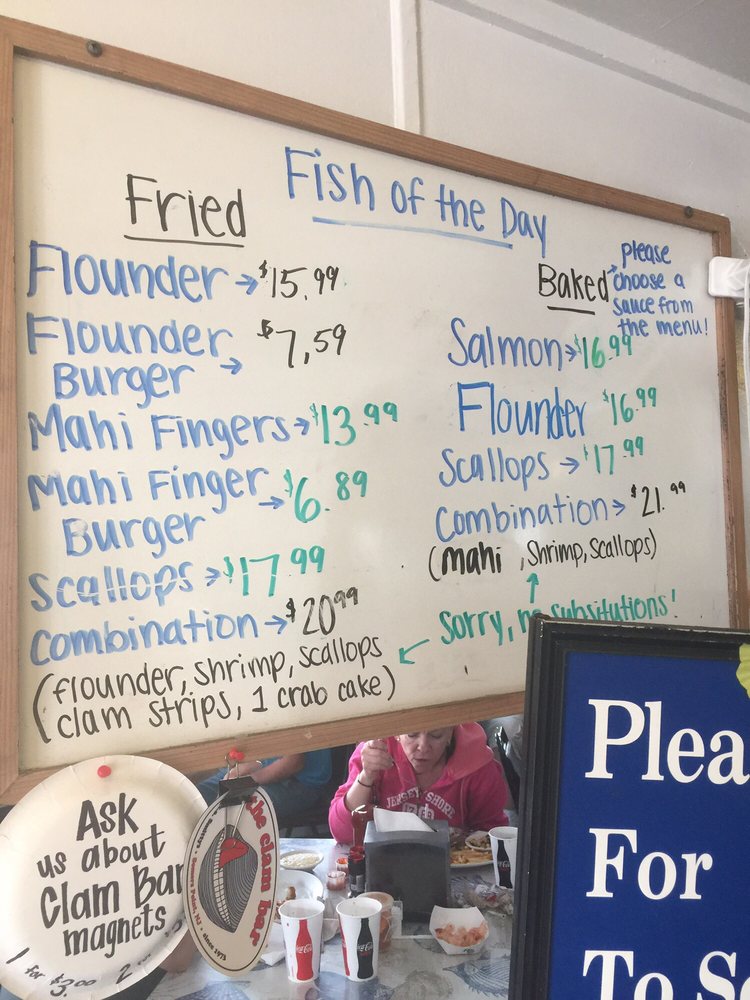 Fish of the Day
Fried
Flounder → $15.99
Flounder $7,59
Burger →
Mahi Fingers → $13.99
Mahi Finger
Burger → $6.89
Scallops → $17.99
Combination → $20.99
(flounder, shrimp, scallops
clam strips, 1 crab cake)
Baked → please
choose a
sauce from
the menu!
Salmon → $16.99
Flounder $16.99
Scallops → $17.99
Combination → $21.99
(mahi, Shrimp, Scallops)
Sorry, no subsitutions!
Ask
us about
Clam Bar
magnets
1 for $3.00 2
the clam bar
since 1973
JERSEY SHORE
Coca-Cola
Coca-Cola
Plea
For
To Se